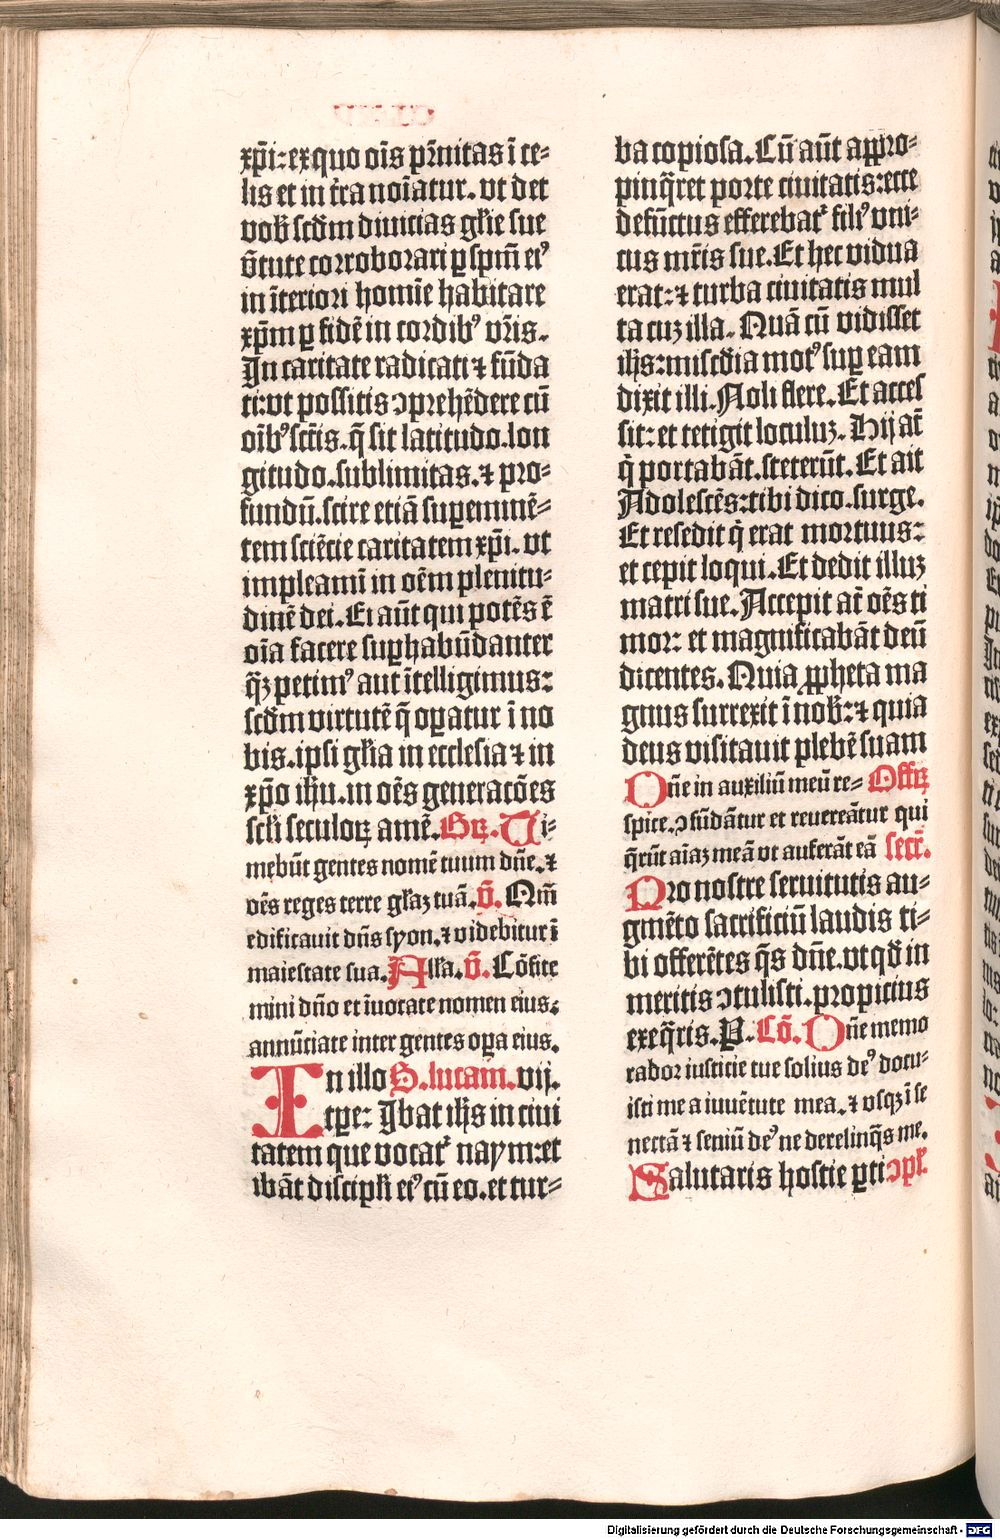 xp̄i: ex quo oīs pr̄nitas ī ce⸗
lis et in t̄ra noīatur. vt det
vob̄ scd̄m diuicias gl̄ie sue
v̄tute corroborari ꝑ spm̄ eiꝰ
in īteriori homīe habitare
xp̄m ꝑ fidē in cordibꝰ vr̄is.
In caritate radicati ⁊ fūda
ti: vt possitis ↄprehēdere cū
oībꝰ sct̄is. q̄ sit latitudo. lon
gitudo. sublimitas. ⁊ pro⸗
fundū. scire etiā suꝑeminē⸗
tem sciēcie caritatem xp̄i. vt
impleamī in oēm plenitu⸗
dinē dei. Ei aūt qui potēs ē
oīa facere suꝑhabūdanter
q̄ꝫ petimꝰ aut ītelligimus:
scd̄m virtutē q̄ oꝑatur ī no
bis. ipsi gl̄ia in ecclesia ⁊ in
xp̄o ih̄u. in oēs generacōes
sc̄li seculoꝝ amē. Gꝝ. Ti⸗
mebūt gentes nomē tuum dn̄e. ⁊
oēs reges terre gl̄iaꝫ tuā. v̄. Qm̄
edificauit dn̄s syon. ⁊ videbitur ī
maiestate sua. All̄a. v̄. Cōfite
mini dn̄o et īuocate nomen eius:
annūciate inter gentes oꝑa eius.
In illo S. lucam. vij.
tꝑe: Ibat ih̄s in ciui
tatem que vocatᷣ naym: et
ibāt discipl̄i eiꝰ cū eo. et tur⸗
ba copiosa. Cū aūt appro⸗
pinq̄ret porte ciuitatis: ecce
defūctus efferebatᷣ filiꝰ vni⸗
cus mr̄is sue. Et hec vidua
erat: ⁊ turba ciuitatis mul
ta cuꝫ illa. Quā cū vidisset
ih̄s: misc̄dia motꝰ suꝑ eam
dixit illi. Noli flere. Et acces
sit: et tetigit loculuꝫ. Hij at̄
q̇ portabāt. steterūt. Et ait
Adolescēs: tibi dico. surge.
Et resedit q̇ erat mortuus:
et cepit loqui. Et dedit illuꝫ
matri sue. Accepit at̄ oēs ti
mor: et magnificabāt deū
dicentes. Quia ꝓpheta ma
gnus surrexit ī nob̄: ⁊ quia
deus visitauit plebē suam
Dn̄e in auxiliū meū re⸗ Offꝝ
spice. ↄfūdātur et reuereātur qui
q̄rūt aīaꝫ meā vt auferāt eā secr̄.
Pro nostre seruitutis au⸗
gmēto sacrificiū laudis ti⸗
bi offerētes q̄s dn̄e. vt qd̄ in
meritis ↄtulisti. propicius
exeq̄ris. P. Cō. Dn̄e memo
rador iusticie tue solius deꝰ docu⸗
isti me a iuuētute mea. ⁊ vsqꝫ ī se
nectā ⁊ seniū deꝰ ne derelinq̄s me.
Salutaris hostie ꝑti ↄpl̄.
Digitalisierung gefördert durch die Deutsche Forschungsgemeinschaft - DFG